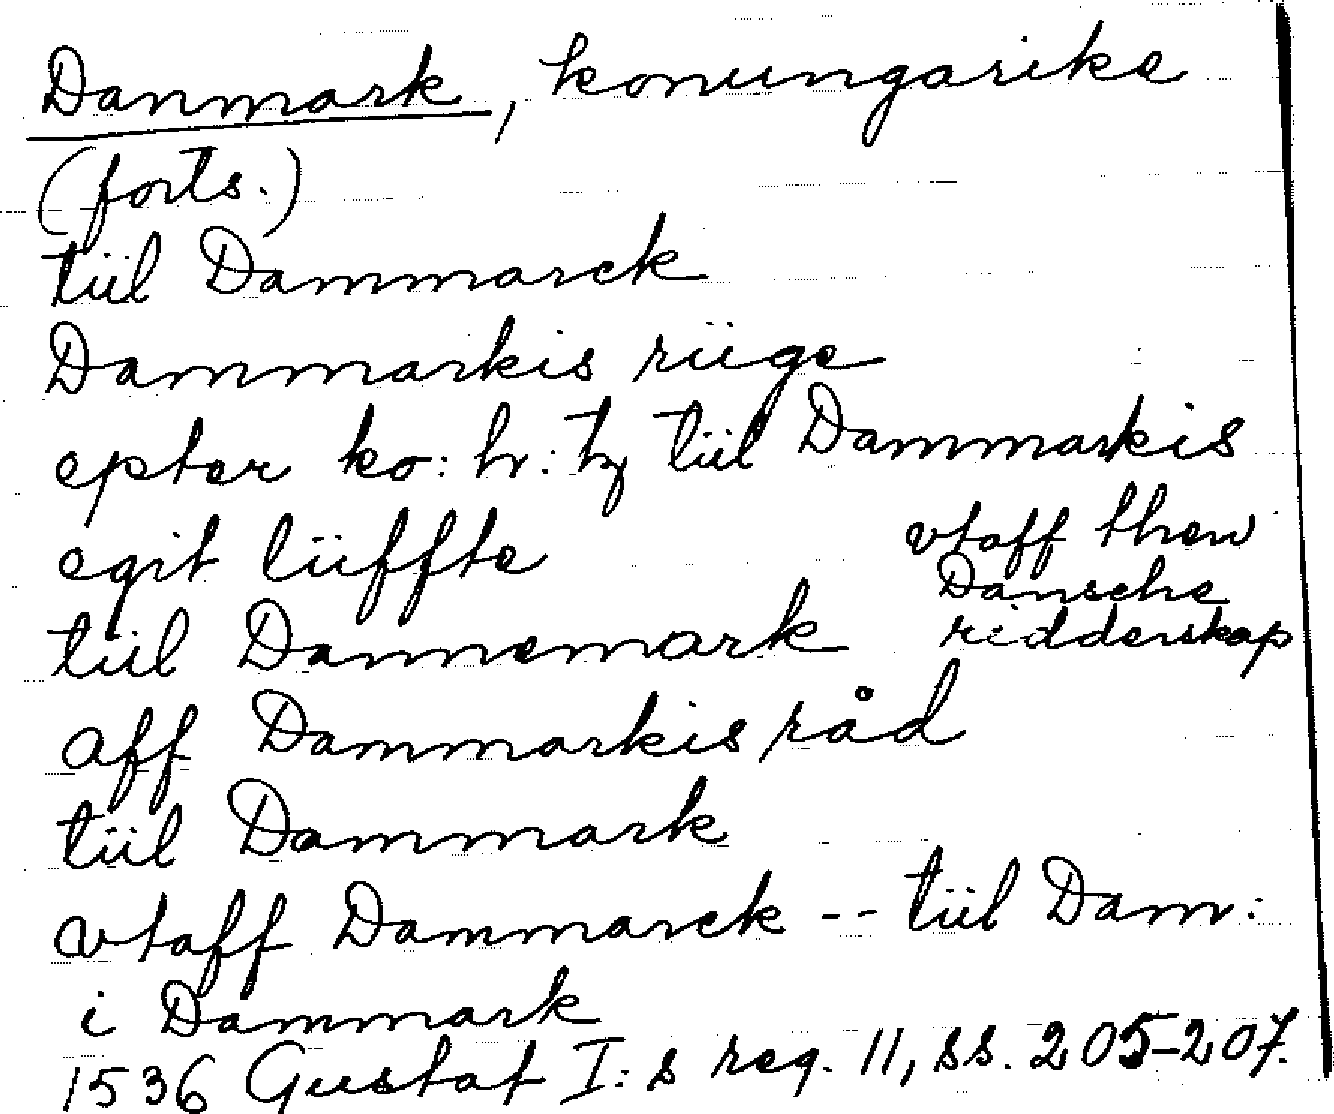 Danmark, konungarike
(forts.)
tiil Dammarck
Dammarkis riige
epter ko: hr: tz tiil Dammarkis
egit liiffte
vtaff then
Dansche
ridderskap
tiil Dannemark
aff Dammarkis råd
tiil Dammark
vtaff Dammarck -- tiil Dam:
i Dammark
1536 Gustaf I:s reg. 11, ss. 205-207.